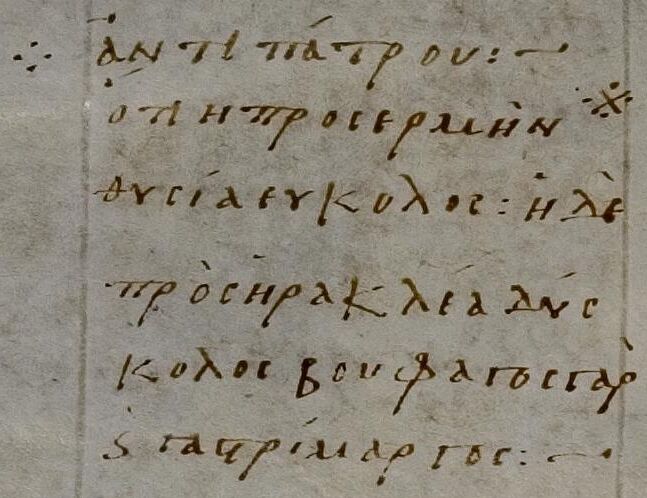 ἀντιπάτρου:~
ὅτι ἡ προσ ερμὴν
θυσία ευκολος: ἡ δὲ
πρὸς ἡρακλέα δύσ
κολος βουφαγος γὰρ
ϗ γαστρίμαργος:~